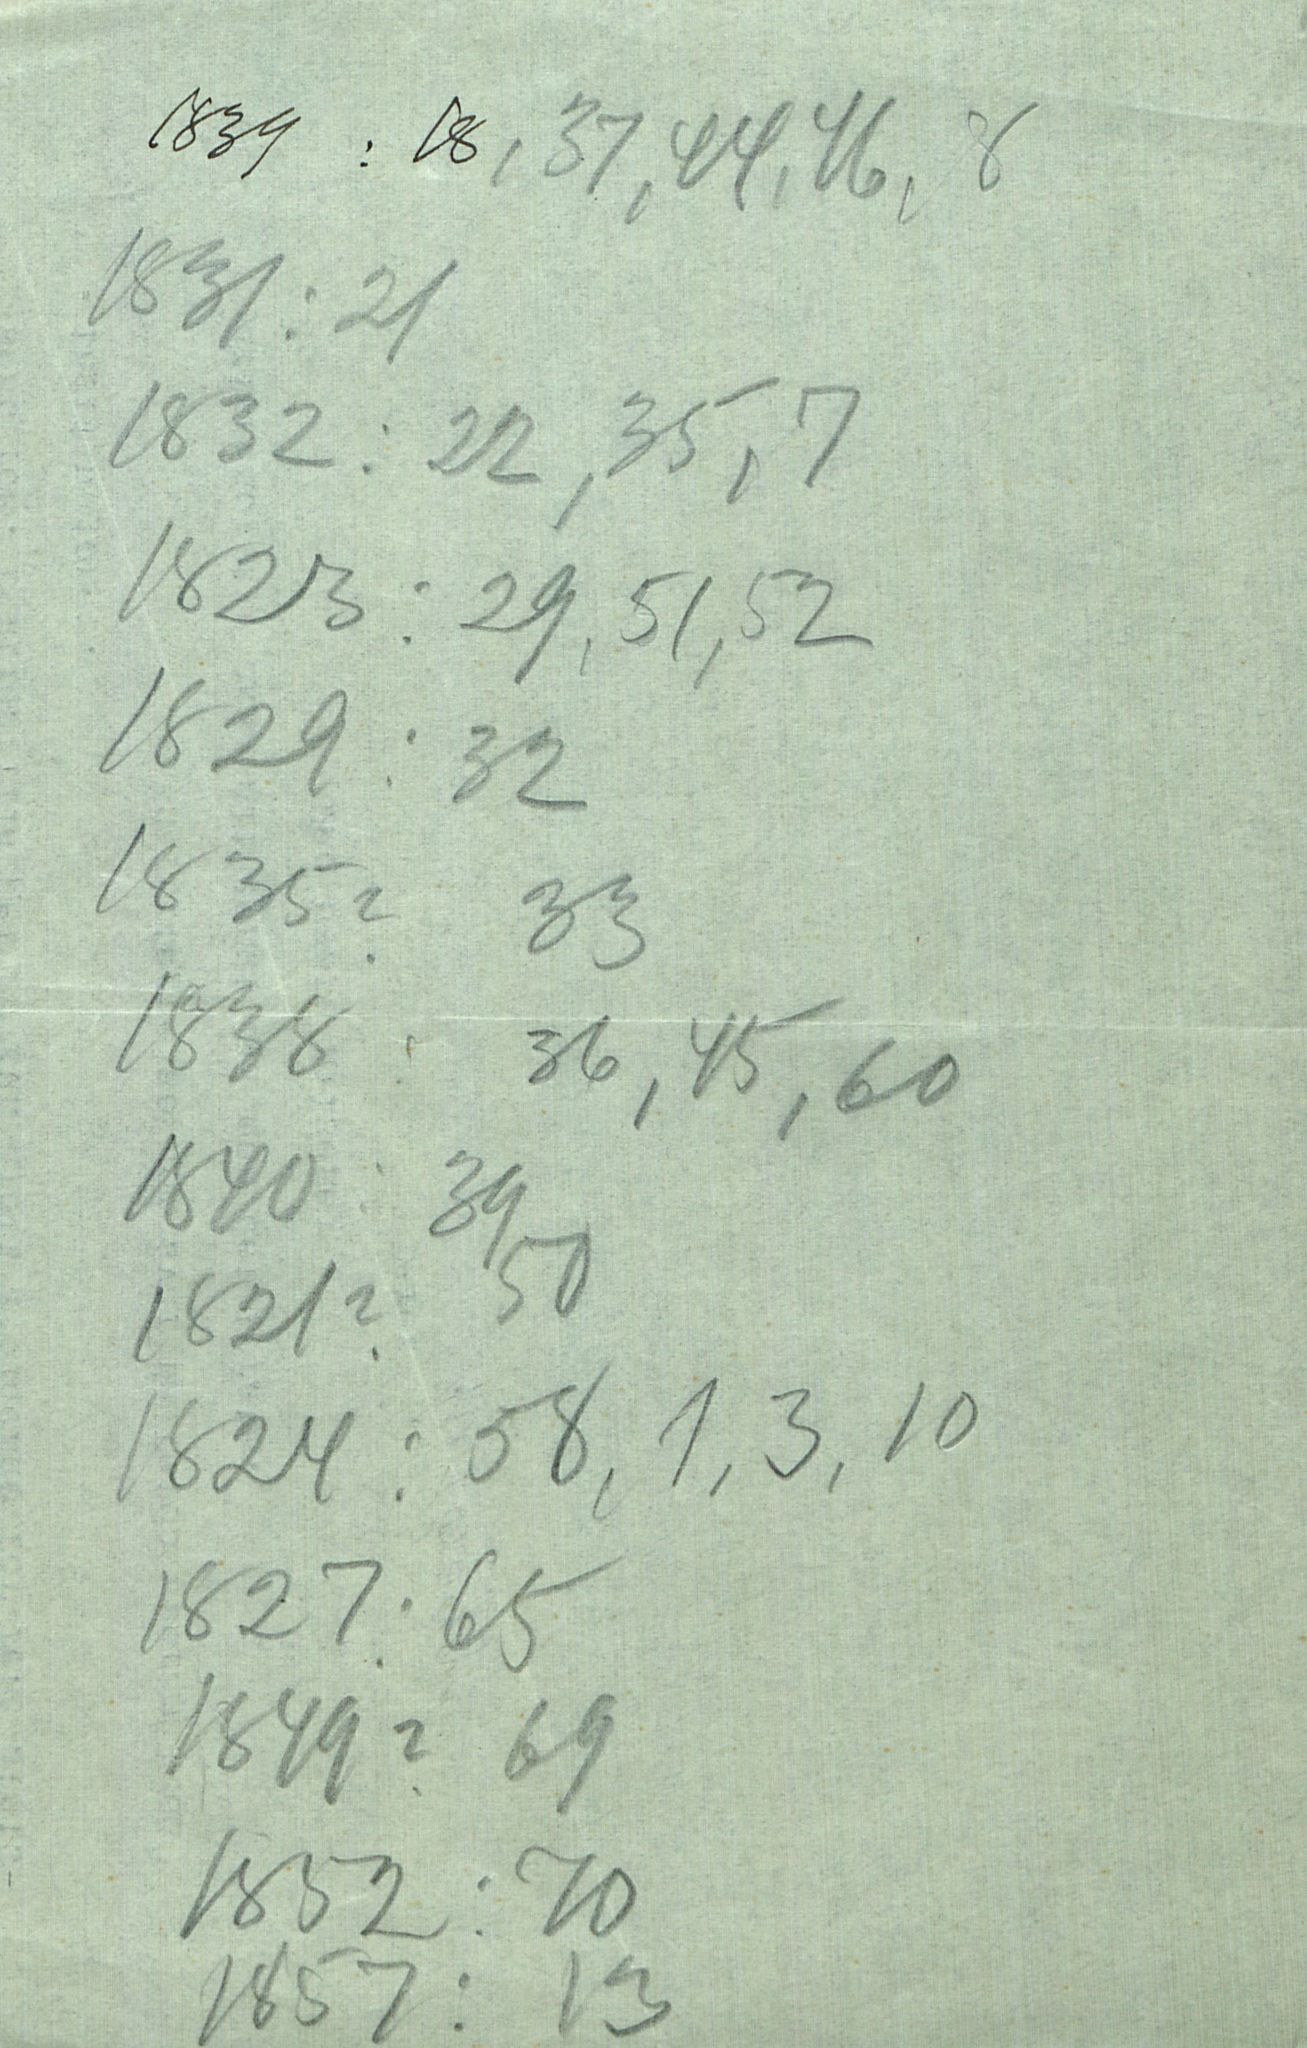 1839 : 18, 37, 44, 46, 8
1831 : 21
1832 : 22, 35, 7
1823 : 29, 51, 52
1829 : 32
1835? 33
1838 : 36, 45, 60
1840 : 39
1821? 50
1824 : 58, 1, 3, 10
1827 : 65
1849? 69
1852 : 70
1857 : 13